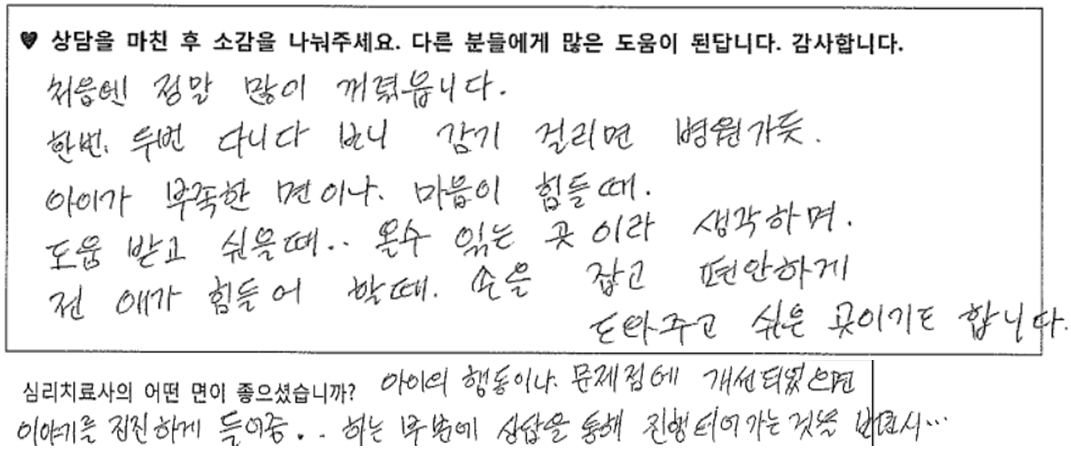 ♥ 상담을 마친 후 소감을 나눠주세요. 다른 분들에게 많은 도움이 된답니다. 감사합니다.
처음엔 정말 많이 꺼렸읍니다.
한번, 두번 다니다 보니 감기 걸리면 병원가듯.
아이가 부족한 면이나. 마음이 힘들때.
도움 받고 싶을때.. 올수 있는 곳이라 생각하며.
전 애가 힘들어 할때. 손을 잡고 편안하게
도와주고 싶은 곳이기도 합니다.
심리치료사의 어떤 면이 좋으셨습니까? 아이의 행동이나. 문제점에 개선되었으면
이야기를 진진하게 들어줌... 하는 부분에 상담을 통해 진행되어 가는것을 보면서...